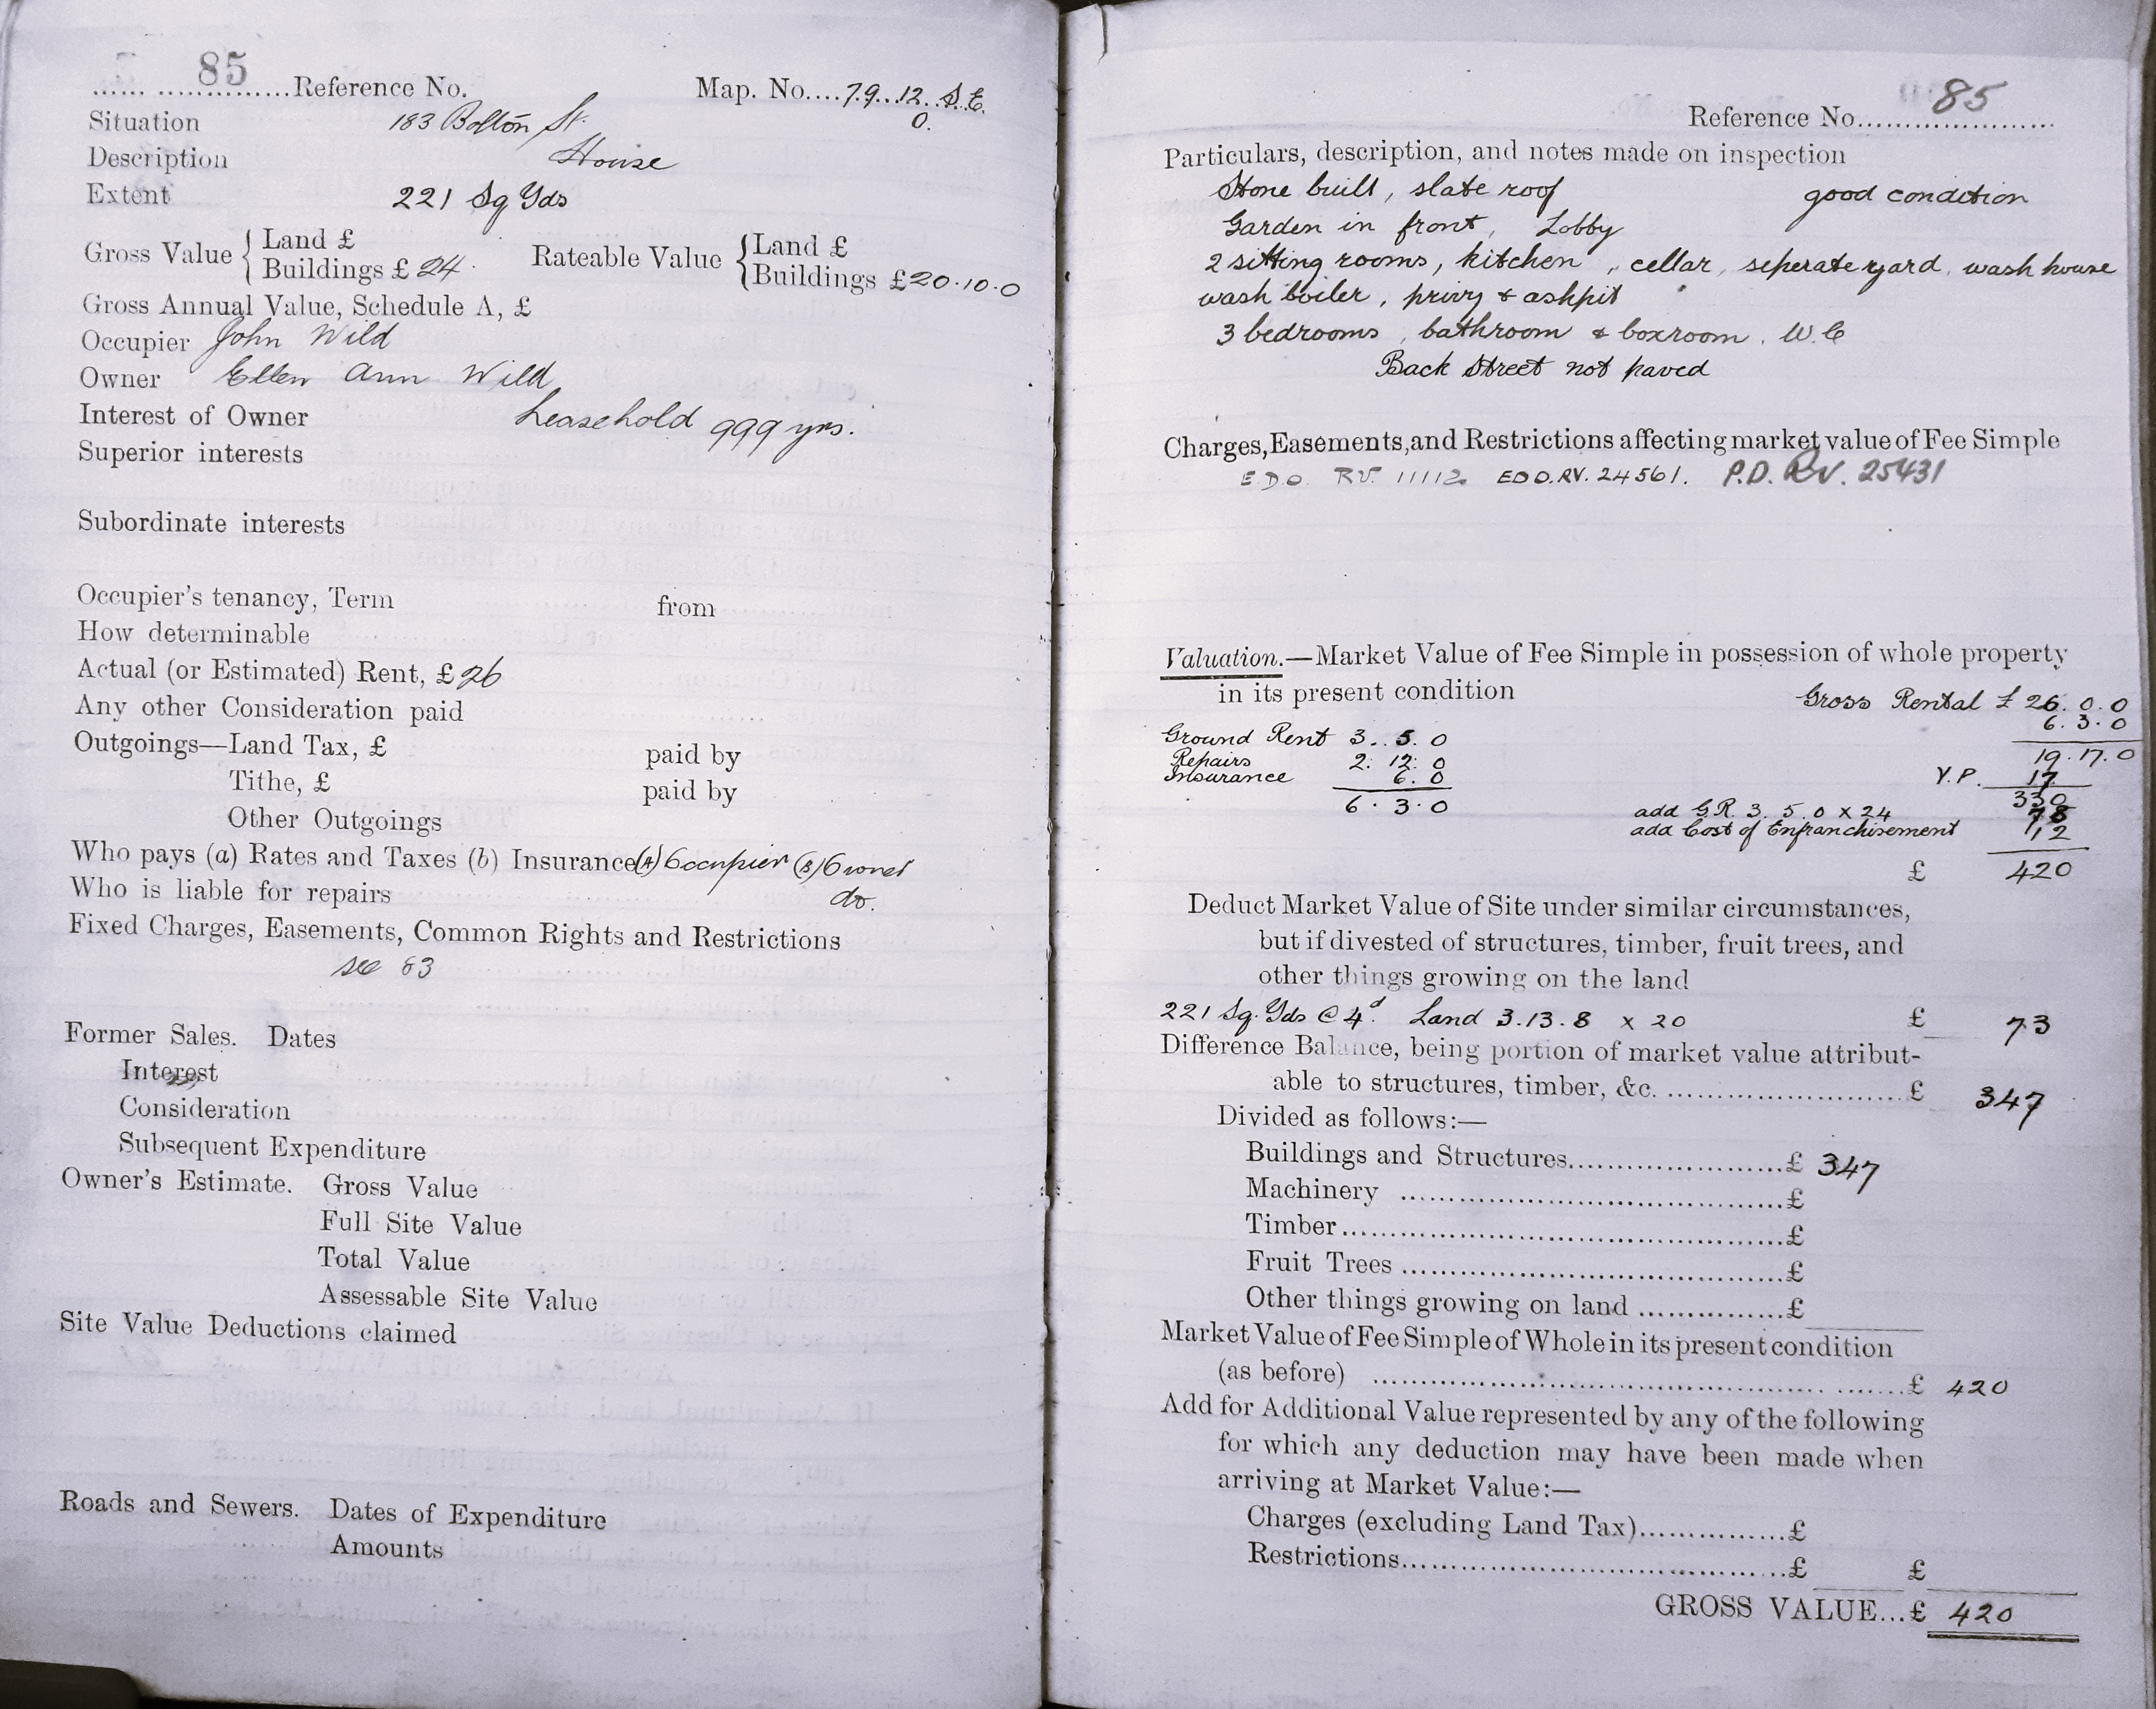 85 Reference No. Map. No. 79. 12. S.E.
Situation 183 Bolton St. O.
Description House
Extent 221 Sq Yds
Gross Value { Land £
Buildings £ 24. Rateable Value { Land £
Buildings £20.10.0
Gross Annual Value, Schedule A, £
Occupier John Wild
Owner Ellen Ann Wild
Interest of Owner Leasehold 999 yrs.
Superior interests
Subordinate interests
Occupier's tenancy, Term from
How determinable
Actual (or Estimated) Rent, £ 26
Any other Consideration paid
Outgoings—Land Tax, £ paid by
Tithe, £ paid by
Other Outgoings
Who pays (a) Rates and Taxes (b) Insurance (A) Occupier (B) Owner
Who is liable for repairs do.
Fixed Charges, Easements, Common Rights and Restrictions
see 83
Former Sales. Dates
Interest
Consideration
Subsequent Expenditure
Owner's Estimate. Gross Value
Full Site Value
Total Value
Assessable Site Value
Site Value Deductions claimed
Roads and Sewers. Dates of Expenditure
Amounts
Reference No. 85
Particulars, description, and notes made on inspection
Stone built, slate roof good condition
Garden in front, Lobby
2 sitting rooms, kitchen, cellar, seperate yard, wash house
wash boiler, privy & ashpit
3 bedrooms, bathroom & boxroom. W.C
Back Street not paved
Charges, Easements, and Restrictions affecting market value of Fee Simple
E.D.O. RV. 11112. EDO.RV. 24561. P.D. RV. 25431
Valuation.—Market Value of Fee Simple in possession of whole property
in its present condition Gross Rental £ 26. 0. 0
6. 3. 0
Ground Rent 3. 5. 0 19. 17. 0
Repairs 2. 12. 0 Y.P. 17
Insurance 6. 0 330
6. 3. 0 add G.R. 3. 5. 0 x 24 78
add Cost of Enfranchisement 12
£ 420
Deduct Market Value of Site under similar circumstances,
but if divested of structures, timber, fruit trees, and
other things growing on the land
221 Sq. Yds @ 4d. Land 3.13.8 x 20 £ 73
Difference Balance, being portion of market value attribut-
able to structures, timber, &c. £ 347
Divided as follows:—
Buildings and Structures £ 347
Machinery £
Timber £
Fruit Trees £
Other things growing on land £
Market Value of Fee Simple of Whole in its present condition
(as before) £ 420
Add for Additional Value represented by any of the following
for which any deduction may have been made when
arriving at Market Value:—
Charges (excluding Land Tax) £
Restrictions £ £
GROSS VALUE...£ 420